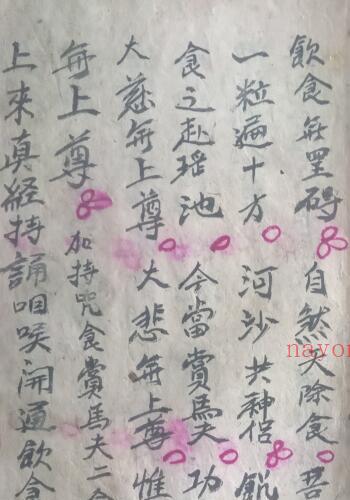 飲食無罣碍 自然天除食 其
一粒遍十方 河沙共神侶 飽
食之赴瑶池 今當賞馬夫 功
大慈無上尊 大悲無上尊 惟
無上尊 加持咒食賞馬夫二食
上來真経持誦咽喉開通飲食
nayon